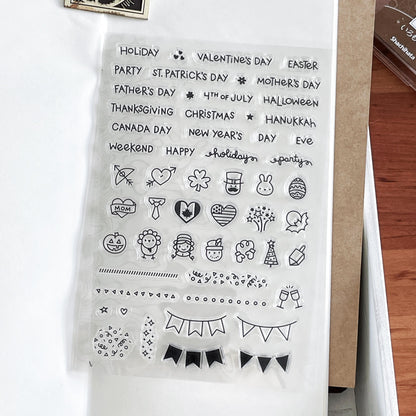 HOLIDAY VALENTINE'S DAY EASTER
PARTY ST. PATRICK'S DAY MOTHER'S DAY
FATHER'S DAY 4TH OF JULY HALLOWEEN
THANKSGIVING CHRISTMAS HANUKKAH
CANADA DAY NEW YEAR'S DAY EVE
WEEKEND HAPPY holidays party
MOM
Shachihata